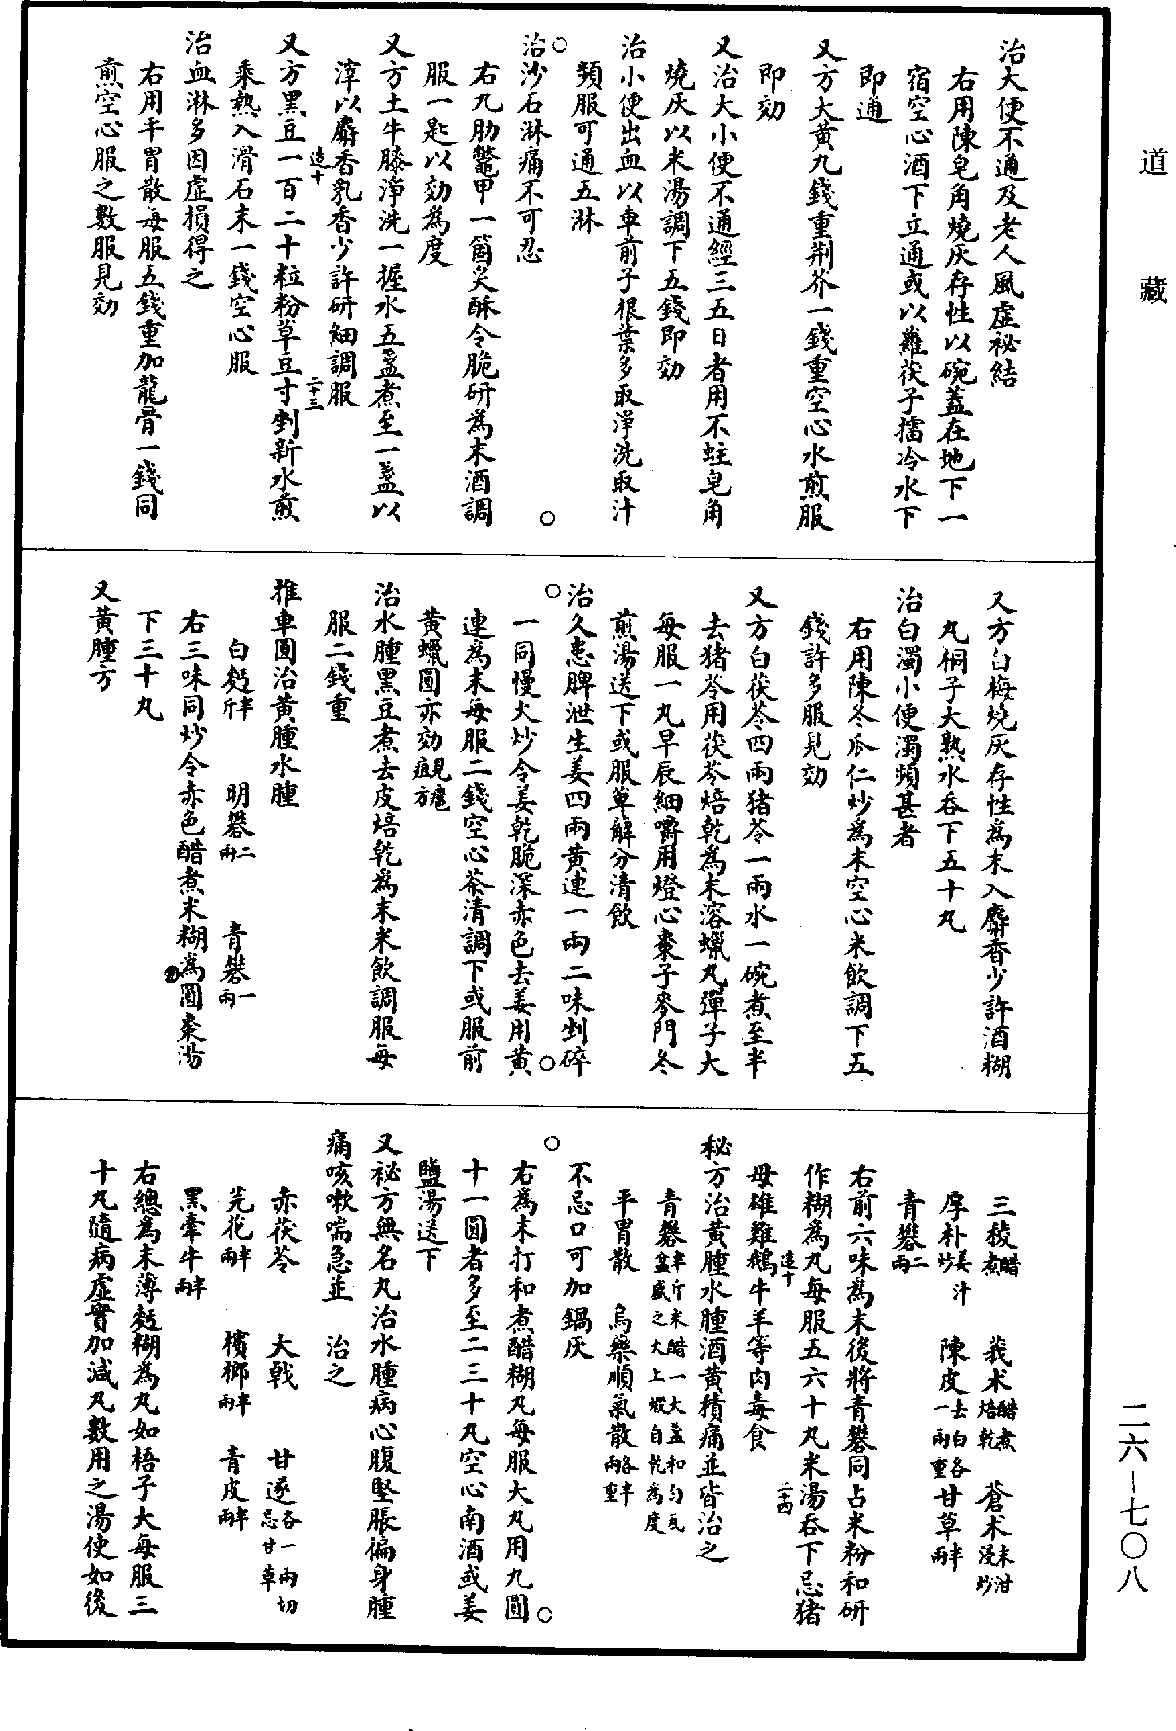 道藏
治大便不通及老人風虛祕結
右用陳皂角燒灰存性以碗蓋在地下一
宿空心酒下立通或以蘿茯子擂冷水下
即通
又方大黃九錢重荆芥一錢重空心水煎服
即効
又治大小便不通經三五日者用不蛀皂角
燒灰以米湯調下五錢即効
治小便出血以車前子根葉多取淨洗取汁
頻服可通五淋
治沙石淋痛不可忍
右九肋鱉甲一箇炙酥令脆研為末酒調
服一匙以効為度
又方土牛膝淨洗一握水五盞煮至一盞以
滓以麝香乳香少許研細調服
遠十
二十三
又方黑豆一百二十粒粉草豆寸剉新水煎
乘熱入滑石末一錢空心服
治血淋多因虛損得之
右用平胃散每服五錢重加龍骨一錢同
煎空心服之數服見効
又方白梅燒灰存性為末入麝香少許酒糊
丸桐子大熟水吞下五十丸
治白濁小便濁頻甚者
右用陳冬瓜仁炒為末空心米飲調下五
錢許多服見効
又方白茯苓四兩猪苓一兩水一碗煮至半
去猪苓用茯苓焙乾為末溶蠟丸彈子大
每服一丸早辰細嚼用燈心棗子麥門冬
煎湯送下或服萆解分清飲
治久患脾泄生姜四兩黃連一兩二味剉碎
一同慢火炒令姜乾脆深赤色去姜用黃
連為末每服二錢空心茶清調下或服前
黃蠟圓亦効見瘧疸方
治水腫黑豆煮去皮焙乾為末米飲調服每
服二錢重
推車圓治黃腫水腫
白麪半斤　明礬二兩　青礬一兩
右三味同炒令赤色醋煮米糊為圓棗湯
下三十丸
又黃腫方
三稜醋煮　莪术醋煮焙乾　蒼术米泔浸炒
厚朴姜汁炒　陳皮去白各一兩重　甘草半兩
青礬二兩
右前六味為末後將青礬同占米粉和研
作糊為丸每服五六十丸米湯吞下忌猪
遠十
二十四
母雄雞鵝牛羊等肉毒食
秘方治黃腫水腫酒黃積痛並皆治之
青礬半斤米醋一大盞和勻瓦盆盛之火上煅自乾為度
平胃散　烏藥順氣散各半兩重
不忌口可加鍋灰
右為末打和煮醋糊丸每服大丸用九圓
十一圓者多至二三十丸空心南酒或姜
鹽湯送下
又祕方無名丸治水腫病心腹堅脹徧身腫
痛咳嗽喘急並　治之
赤茯苓　大戟　甘遂各一兩切忌甘草
芫花半兩　檳榔半兩　青皮半兩
黑牽牛半兩
右總為末薄麪糊為丸如梧子大每服三
十丸隨病虛實加減丸數用之湯使如後
二六—七〇八